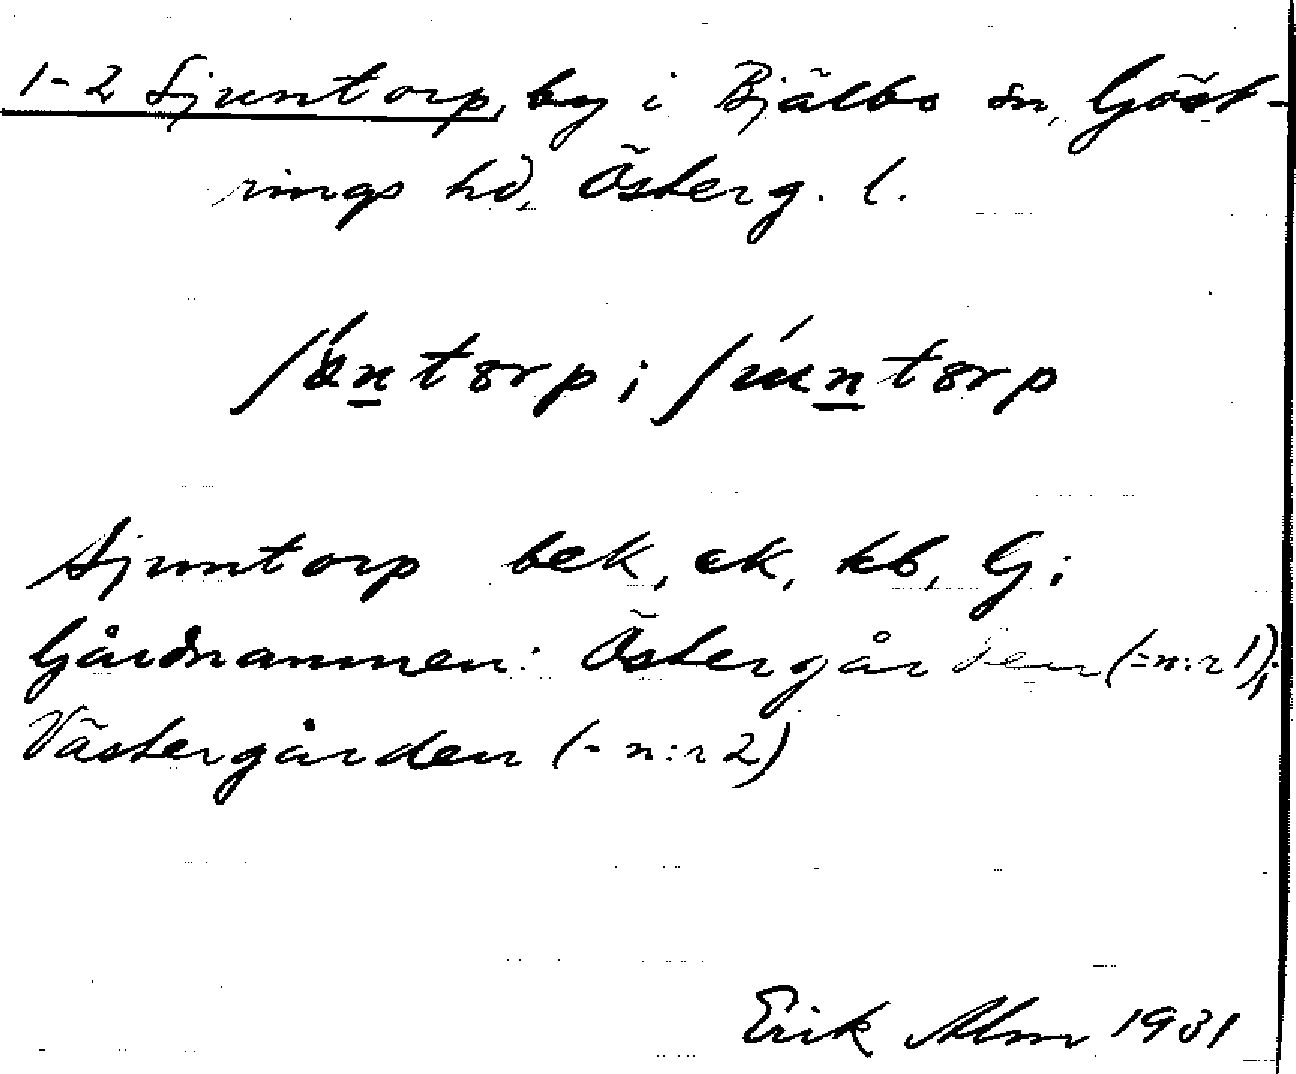 1-2 Sjuntorp, by i Bjälbo sn, Göst-
rings hd, Österg. l.
Sjuntorp bek, ek, kb, G;
Gårdnamnen: Östergården (= n:r 1);
Västergården (= n:r 2)
Erik Alm 1931